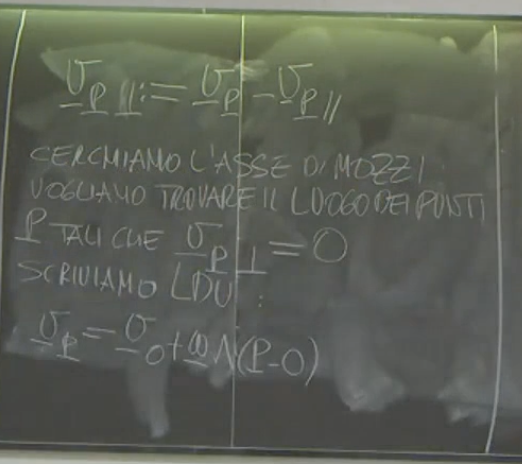 v_P ⊥ := v_P - v_P //
CERCHIAMO L'ASSE DI MOZZI
VOGLIAMO TROVARE IL LUOGO DEI PUNTI
P TALI CHE v_P ⊥ = 0
SCRIVIAMO LDV :
v_P = v_O + ω ∧ (P-O)